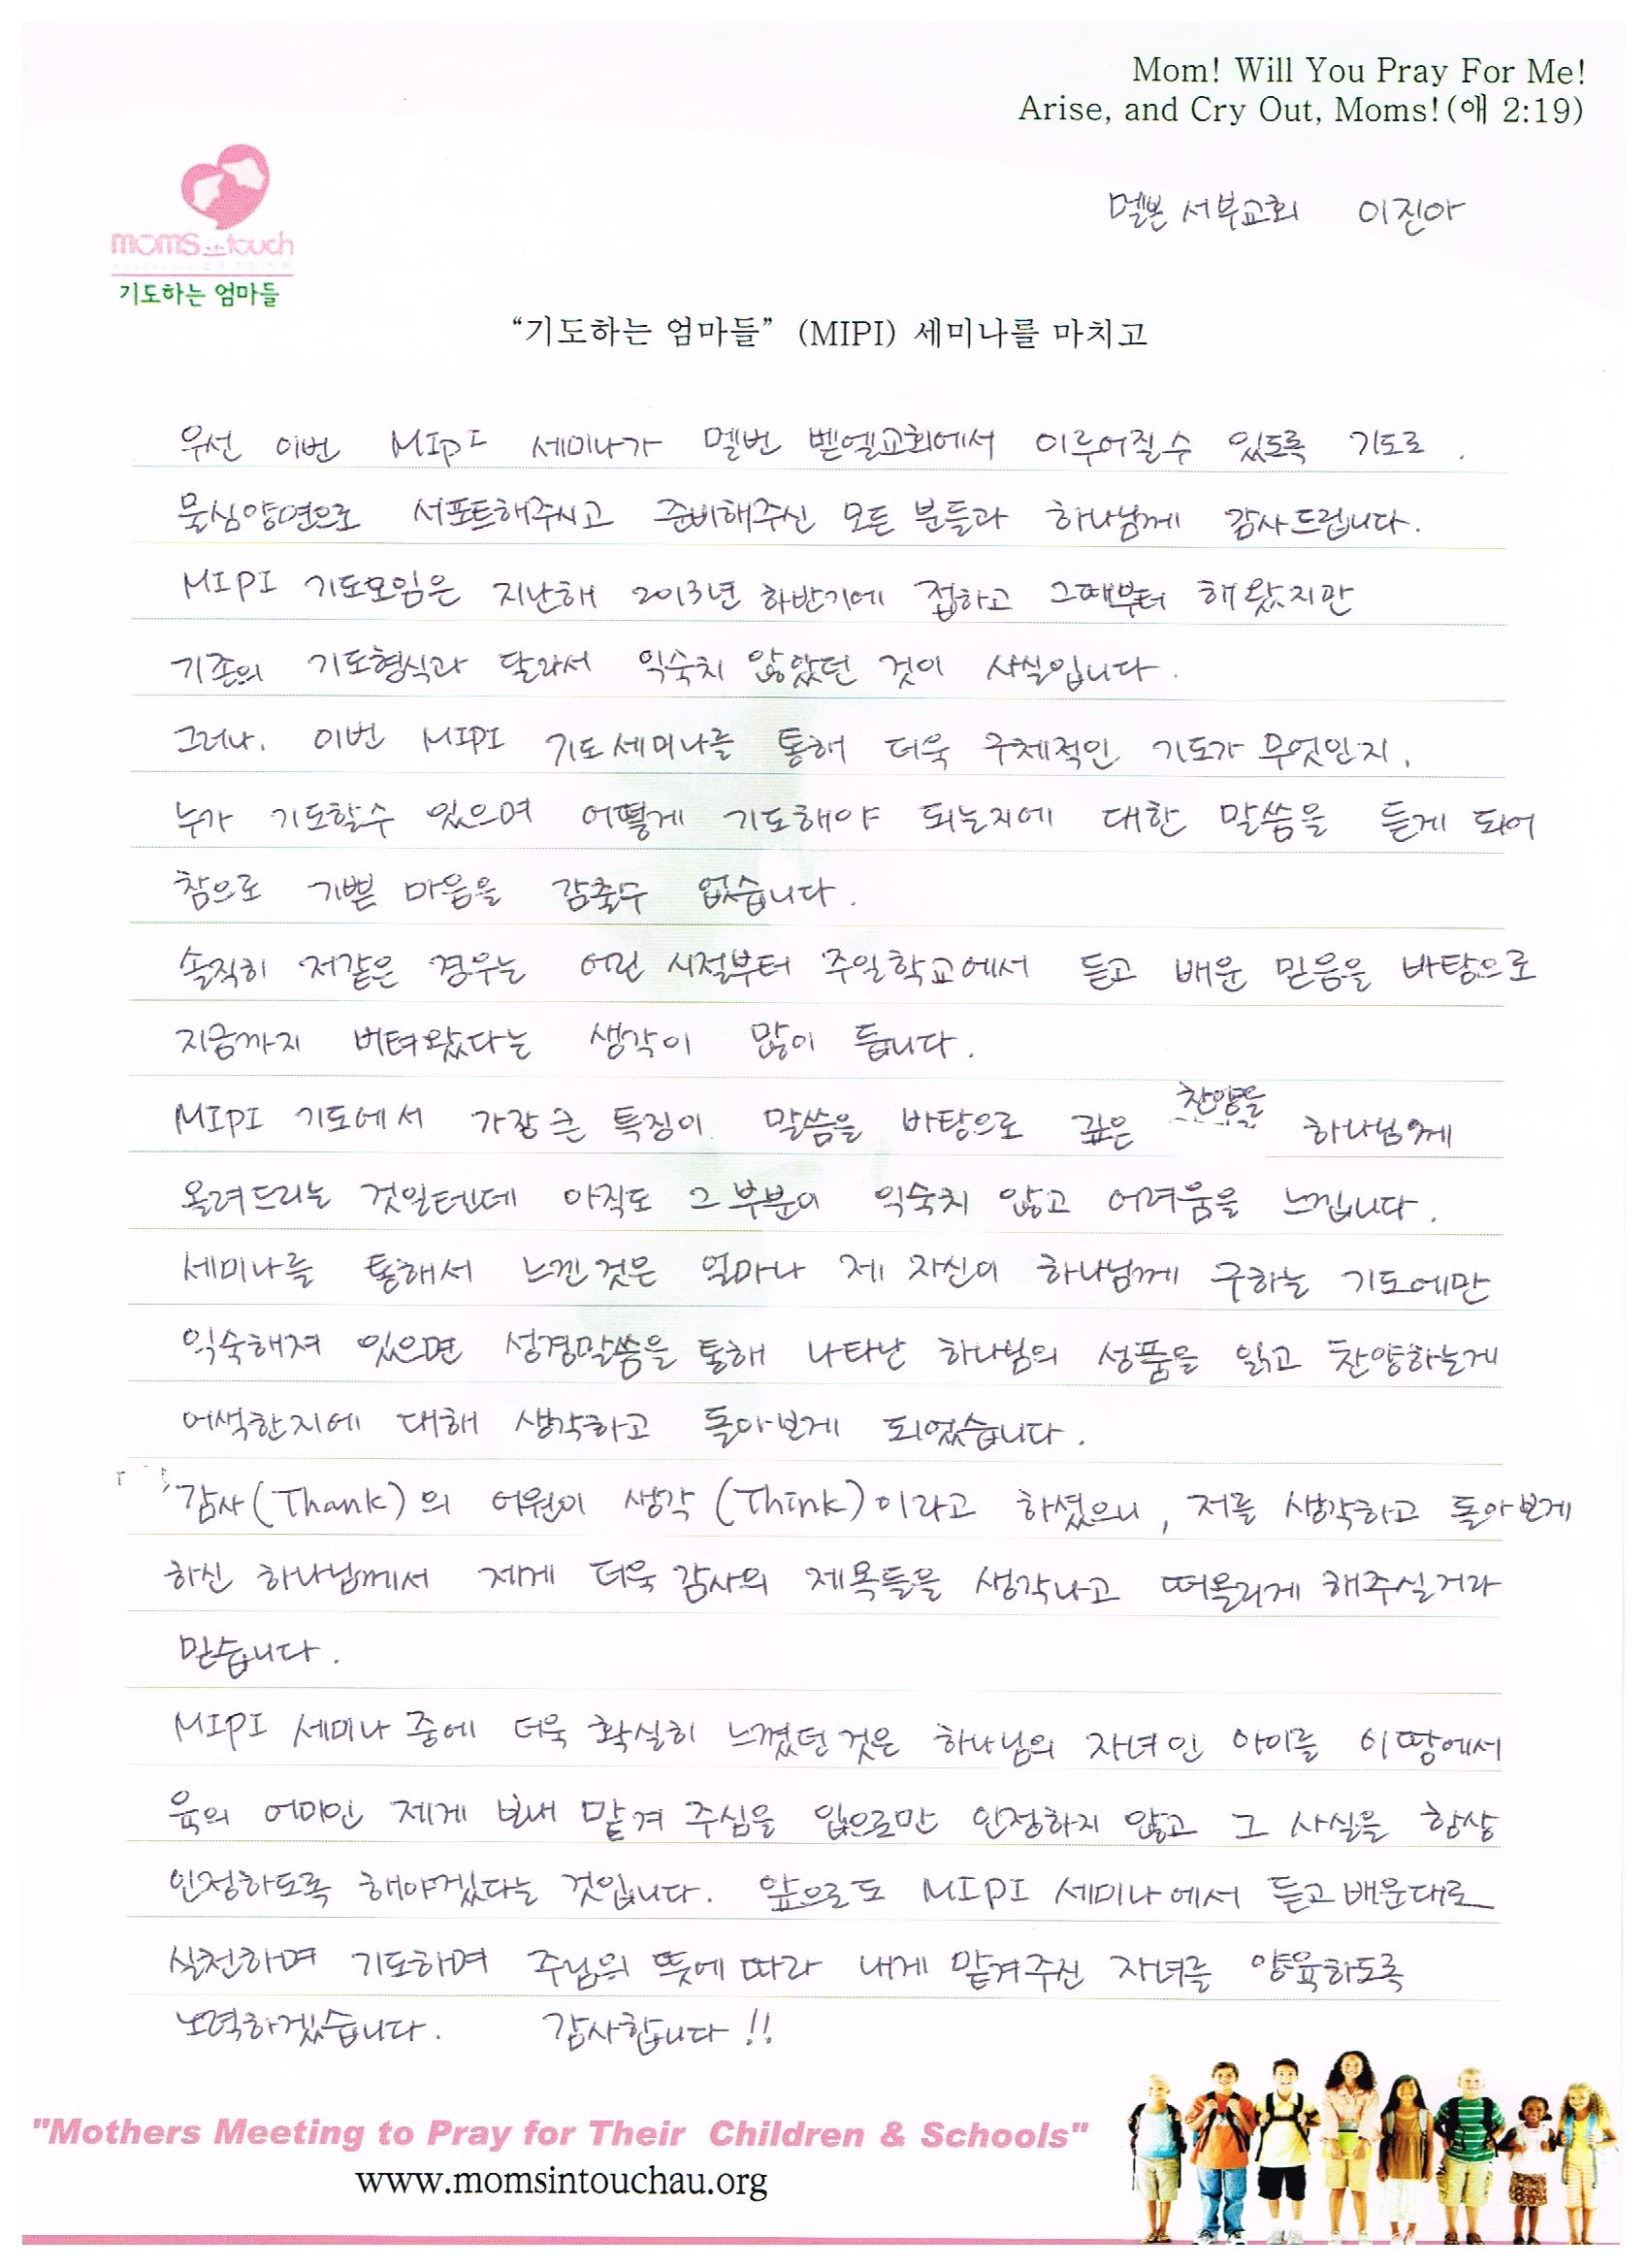 Mom! Will You Pray For Me!
Arise, and Cry Out, Moms!(애 2:19)
moms in touch
기도하는 엄마들
멜본 서부교회 이진아
“기도하는 엄마들” (MIPI) 세미나를 마치고
우선 이번 MIPI 세미나가 멜번 벧엘교회에서 이루어질수 있도록 기도로.
물심양면으로 서포트해주시고 준비해주신 모든 분들과 하나님께 감사드립니다.
MIPI 기도모임은 지난해 2013년 하반기에 접하고 그때부터 해왔지만
기존의 기도형식과 달라서 익숙치 않았던 것이 사실입니다.
그러나, 이번 MIPI 기도세미나를 통해 더욱 구체적인 기도가 무엇인지,
누가 기도할수 있으며 어떻게 기도해야 되는지에 대한 말씀을 듣게 되어
참으로 기쁜 마음을 감출수 없습니다.
솔직히 저같은 경우는 어린 시절부터 주일학교에서 듣고 배운 믿음을 바탕으로
지금까지 버텨왔다는 생각이 많이 듭니다.
MIPI 기도에서 가장 큰 특징이 말씀을 바탕으로 깊은 찬양을 하나님께
올려드리는 것일텐데 아직도 그 부분이 익숙치 않고 어려움을 느낍니다.
세미나를 통해서 느낀것은 얼마나 제 자신이 하나님께 구하는 기도에만
익숙해져 있으면 성경말씀을 통해 나타난 하나님의 성품을 읽고 찬양하는게
어색한지에 대해 생각하고 돌아보게 되었습니다.
감사(Thank)의 어원이 생각(Think)이라고 하셨으니, 저를 생각하고 돌아보게
하신 하나님께서 제게 더욱 감사의 제목들을 생각나고 떠올리게 해주실거라
믿습니다.
MIPI 세미나 중에 더욱 확실히 느꼈던것은 하나님의 자녀인 아이를 이땅에서
육의 어미인 제게 보내 맡겨 주심을 입으로만 인정하지 않고 그 사실을 항상
인정하도록 해야겠다는 것입니다. 앞으로도 MIPI 세미나에서 듣고배운대로
실천하며 기도하며 주님의 뜻에 따라 내게 맡겨주신 자녀를 양육하도록
노력하겠습니다. 감사합니다!!
"Mothers Meeting to Pray for Their Children & Schools"
www.momsintouchau.org